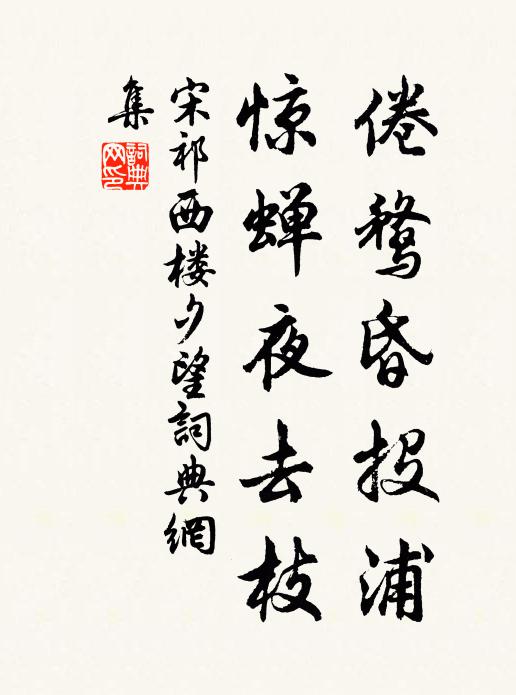 倦鹜昏投浦
惊蝉夜去枝
宋祁西楼夕望詞典網
集
詞典网印